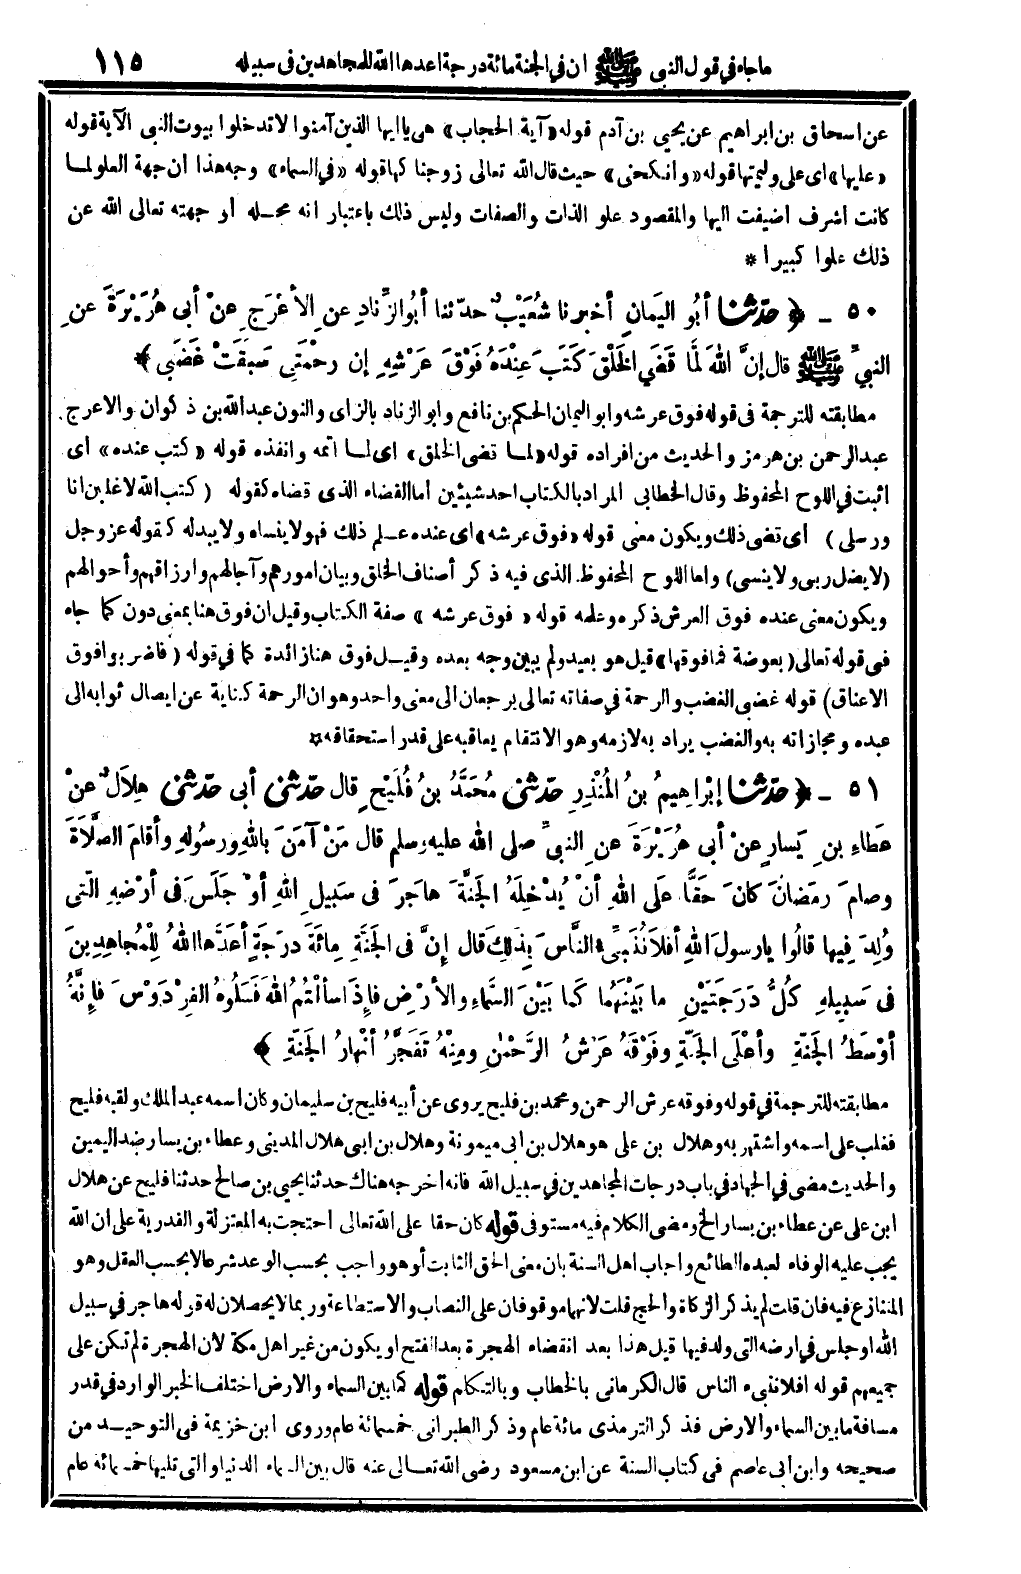 ما جاء في قول النبي ﷺ ان في الجنة مائة درجة اعدها الله للمجاهدين في سبيله ١١٥
عن اسحاق بن ابراهيم عن يحيى بن آدم قوله «آية الحجاب» هي يا ايها الذين آمنوا لا تدخلوا بيوت النبي الآية قوله
«عليها» اى على وليمتها قوله «وانكحنى» حيث قال الله تعالى زوجنا كها قوله «في السماء» وجه هذا ان جهة العلو لما
كانت اشرف اضيفت اليها والمقصود علو الذات والصفات وليس ذلك باعتبار انه محله أو جهته تعالى الله عن
ذلك علوا كبيرا *
٥٠ ـ ﴿ حدّثنا أبُو اليَمانِ أخبرنا شُعَيْبٌ حدّثنا أبُو الزِّنادِ عنِ الأعْرَجِ عنْ أبى هُرَيْرَةَ عنِ
النبيِّ ﷺ قال إنَّ اللهَ لَمَّا قَضَي الخَلْقَ كَتَبَ عِنْدَهُ فَوْقَ عَرْشِهِ إن رحْمَتِى سَبَقَتْ غَضَبِى ﴾
مطابقته للترجمة في قوله فوق عرشه وابو اليمان الحكم بن نافع وابو الزناد بالزاى والنون عبد الله بن ذكوان والاعرج
عبد الرحمن بن هرمز والحديث من افراده قوله «لما قضى الخلق» اى لما اتمه وانفذه قوله «كتب عنده» اى
اثبت في اللوح المحفوظ وقال الخطابى المراد بالكتاب احد شيئين اما القضاء الذى قضاه كقوله (كتب الله لاغلبن انا
ورسلى) اى قضى ذلك ويكون معنى قوله «فوق عرشه» اى عنده علم ذلك فهو لا ينساه ولا يبدله كقوله عز وجل
(لا يضل ربى ولا ينسى) واما اللوح المحفوظ الذى فيه ذكر أصناف الخلق وبيان امورهم وآجالهم وارزاقهم وأحوالهم
ويكون معنى عنده فوق العرش ذكره وعلمه قوله «فوق عرشه» صفة الكتاب وقيل ان فوق هنا بمعنى دون كما جاء
في قوله تعالى (بعوضة فما فوقها) قيل هو بعيد ولم يبين وجه بعده وقيل فوق هنا زائدة كما في قوله (فاضربوا فوق
الاعناق) قوله غضبى الغضب والرحمة في صفاته تعالى يرجعان الى معنى واحد وهو ان الرحمة كناية عن ايصال ثوابه الى
عبده ومجازاته به والغضب يراد به لازمه وهو الانتقام يعاقبه على قدر استحقاقه *
٥١ ـ ﴿ حدّثنا إبْراهِيمُ بنُ المُنْذِرِ حدّثنى مُحَمَّدُ بنُ فُلَيْحٍ قال حدّثنى أبى حدّثنى هِلاَلٌ عنْ
عَطاءِ بنِ يَسارٍ عنْ أبى هُرَيْرَةَ عنِ النبيِّ صلى الله عليه وسلم قال مَنْ آمَنَ بالله ورسُولِهِ وأقامَ الصَّلاَةَ
وصامَ رمَضانَ كانَ حَقًّا عَلَى اللهِ أنْ يُدْخِلَهُ الجَنَّةَ هاجَرَ في سَبِيلِ اللهِ أوْ جَلَسَ في أرْضِهِ الَّتى
وُلِدَ فِيها قالُوا يا رسولَ اللهِ أفلاَ نُنَبِّىءُ النَّاسَ بِذَلِكَ قال إنَّ في الجَنَّةِ مِائَةَ درَجَةٍ أعَدَّها اللهُ لِلْمُجاهِدِينَ
في سَبِيلِهِ كُلُّ دَرَجَتَيْنِ ما بَيْنَهُما كَما بَيْنَ السَّماءِ والأرْضِ فإذَا سألْتُمُ اللهَ فَسَلُوهُ الفِرْدَوْسَ فإنَّهُ
أوْسَطُ الجَنَّةِ وأعْلَى الجَنَّةِ وفَوْقَهُ عَرْشُ الرَّحْمٰنِ ومِنْهُ تَفَجَّرُ أنْهارُ الجَنَّةِ ﴾
مطابقته للترجمة في قوله وفوقه عرش الرحمن ومحمد بن فليح يروى عن أبيه فليح بن سليمان وكان اسمه عبد الملك ولقبه فليح
فغلب على اسمه واشتهر به وهلال بن على هو هلال بن ابى ميمونة وهلال بن ابى هلال المدينى وعطاء بن يسار ضد اليمين
والحديث مضى في الجهاد في باب درجات المجاهدين في سبيل الله فانه اخرجه هناك حدثنا يحيى بن صالح حدثنا فليح عن هلال
ابن على عن عطاء بن يسار الخ ومضى الكلام فيه مستوفى قوله كان حقا على الله تعالى احتجت به المعتزلة والقدرية على ان الله
يجب عليه الوفاء لعبده الطائع واجاب اهل السنة بان معنى الحق الثابت أو هو واجب بحسب الوعد شرعا لا بحسب العقل وهو
المتنازع فيه فان قلت لم يذكر الزكاة والحج قلت لانهما موقوفان على النصاب والاستطاعة وربما لا يحصلان له قوله هاجر في سبيل
الله او جلس في ارضه التى ولد فيها قيل هذا بعد انقضاء الهجرة بعد الفتح او يكون من غير اهل مكة لأن الهجرة لم تكن على
جميعهم قوله افلا ننبىء الناس قال الكرمانى بالخطاب وبالتكلم قوله كما بين السماء والارض اختلف الخبر الوارد في قدر
مسافة ما بين السماء والارض فذكر الترمذى مائة عام وذكر الطبرانى خمسمائة عام وروى ابن خزيمة في التوحيد من
صحيحه وابن ابى عاصم في كتاب السنة عن ابن مسعود رضى الله تعالى عنه قال بين السماء الدنيا والتى تليها خمسمائة عام